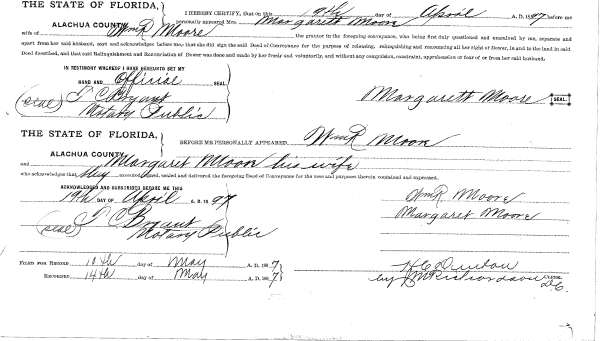 THE STATE OF FLORIDA,
ALACHUA COUNTY.
I HEREBY CERTIFY, that on this 19th day of April A. D. 1897 before me
personally appeared Mrs. Margarett Moore
wife of Wm R Moore the grantor in the foregoing conveyance, who being first duly questioned and examined by me, separate and
apart from her said husband, says and acknowledges before me, that she did sign the said Deed of Conveyance for the purpose of releasing, relinquishing and renouncing all her right of Dower, in and to the land in said
Deed described, and that said Relinquishment and Renunciation of Dower was done and made by her freely and voluntarily, and without any compulsion, constraint, apprehension or fear of or from her said husband.
IN TESTIMONY WHEREOF I HAVE HEREUNTO SET MY
HAND AND Official SEAL
(seal) T C Bryant
Notary Public
Margarett Moore SEAL.
THE STATE OF FLORIDA,
ALACHUA COUNTY
BEFORE ME PERSONALLY APPEARED Wm R Moore
and Margaret Moore his wife
who acknowledges that they executed, sealed and delivered the foregoing Deed of Conveyance for the uses and purposes therein contained and expressed.
ACKNOWLEDGED AND SUBSCRIBED BEFORE ME THIS
19th DAY OF April A. D. 1897
(seal) T C Bryant
Notary Public
Wm R Moore
Margaret Moore
FILED FOR RECORD day of May A. D. 1897
RECORDED 14th day of May A. D. 1897
H C Denton
CLERK.
by Richardson D.C.